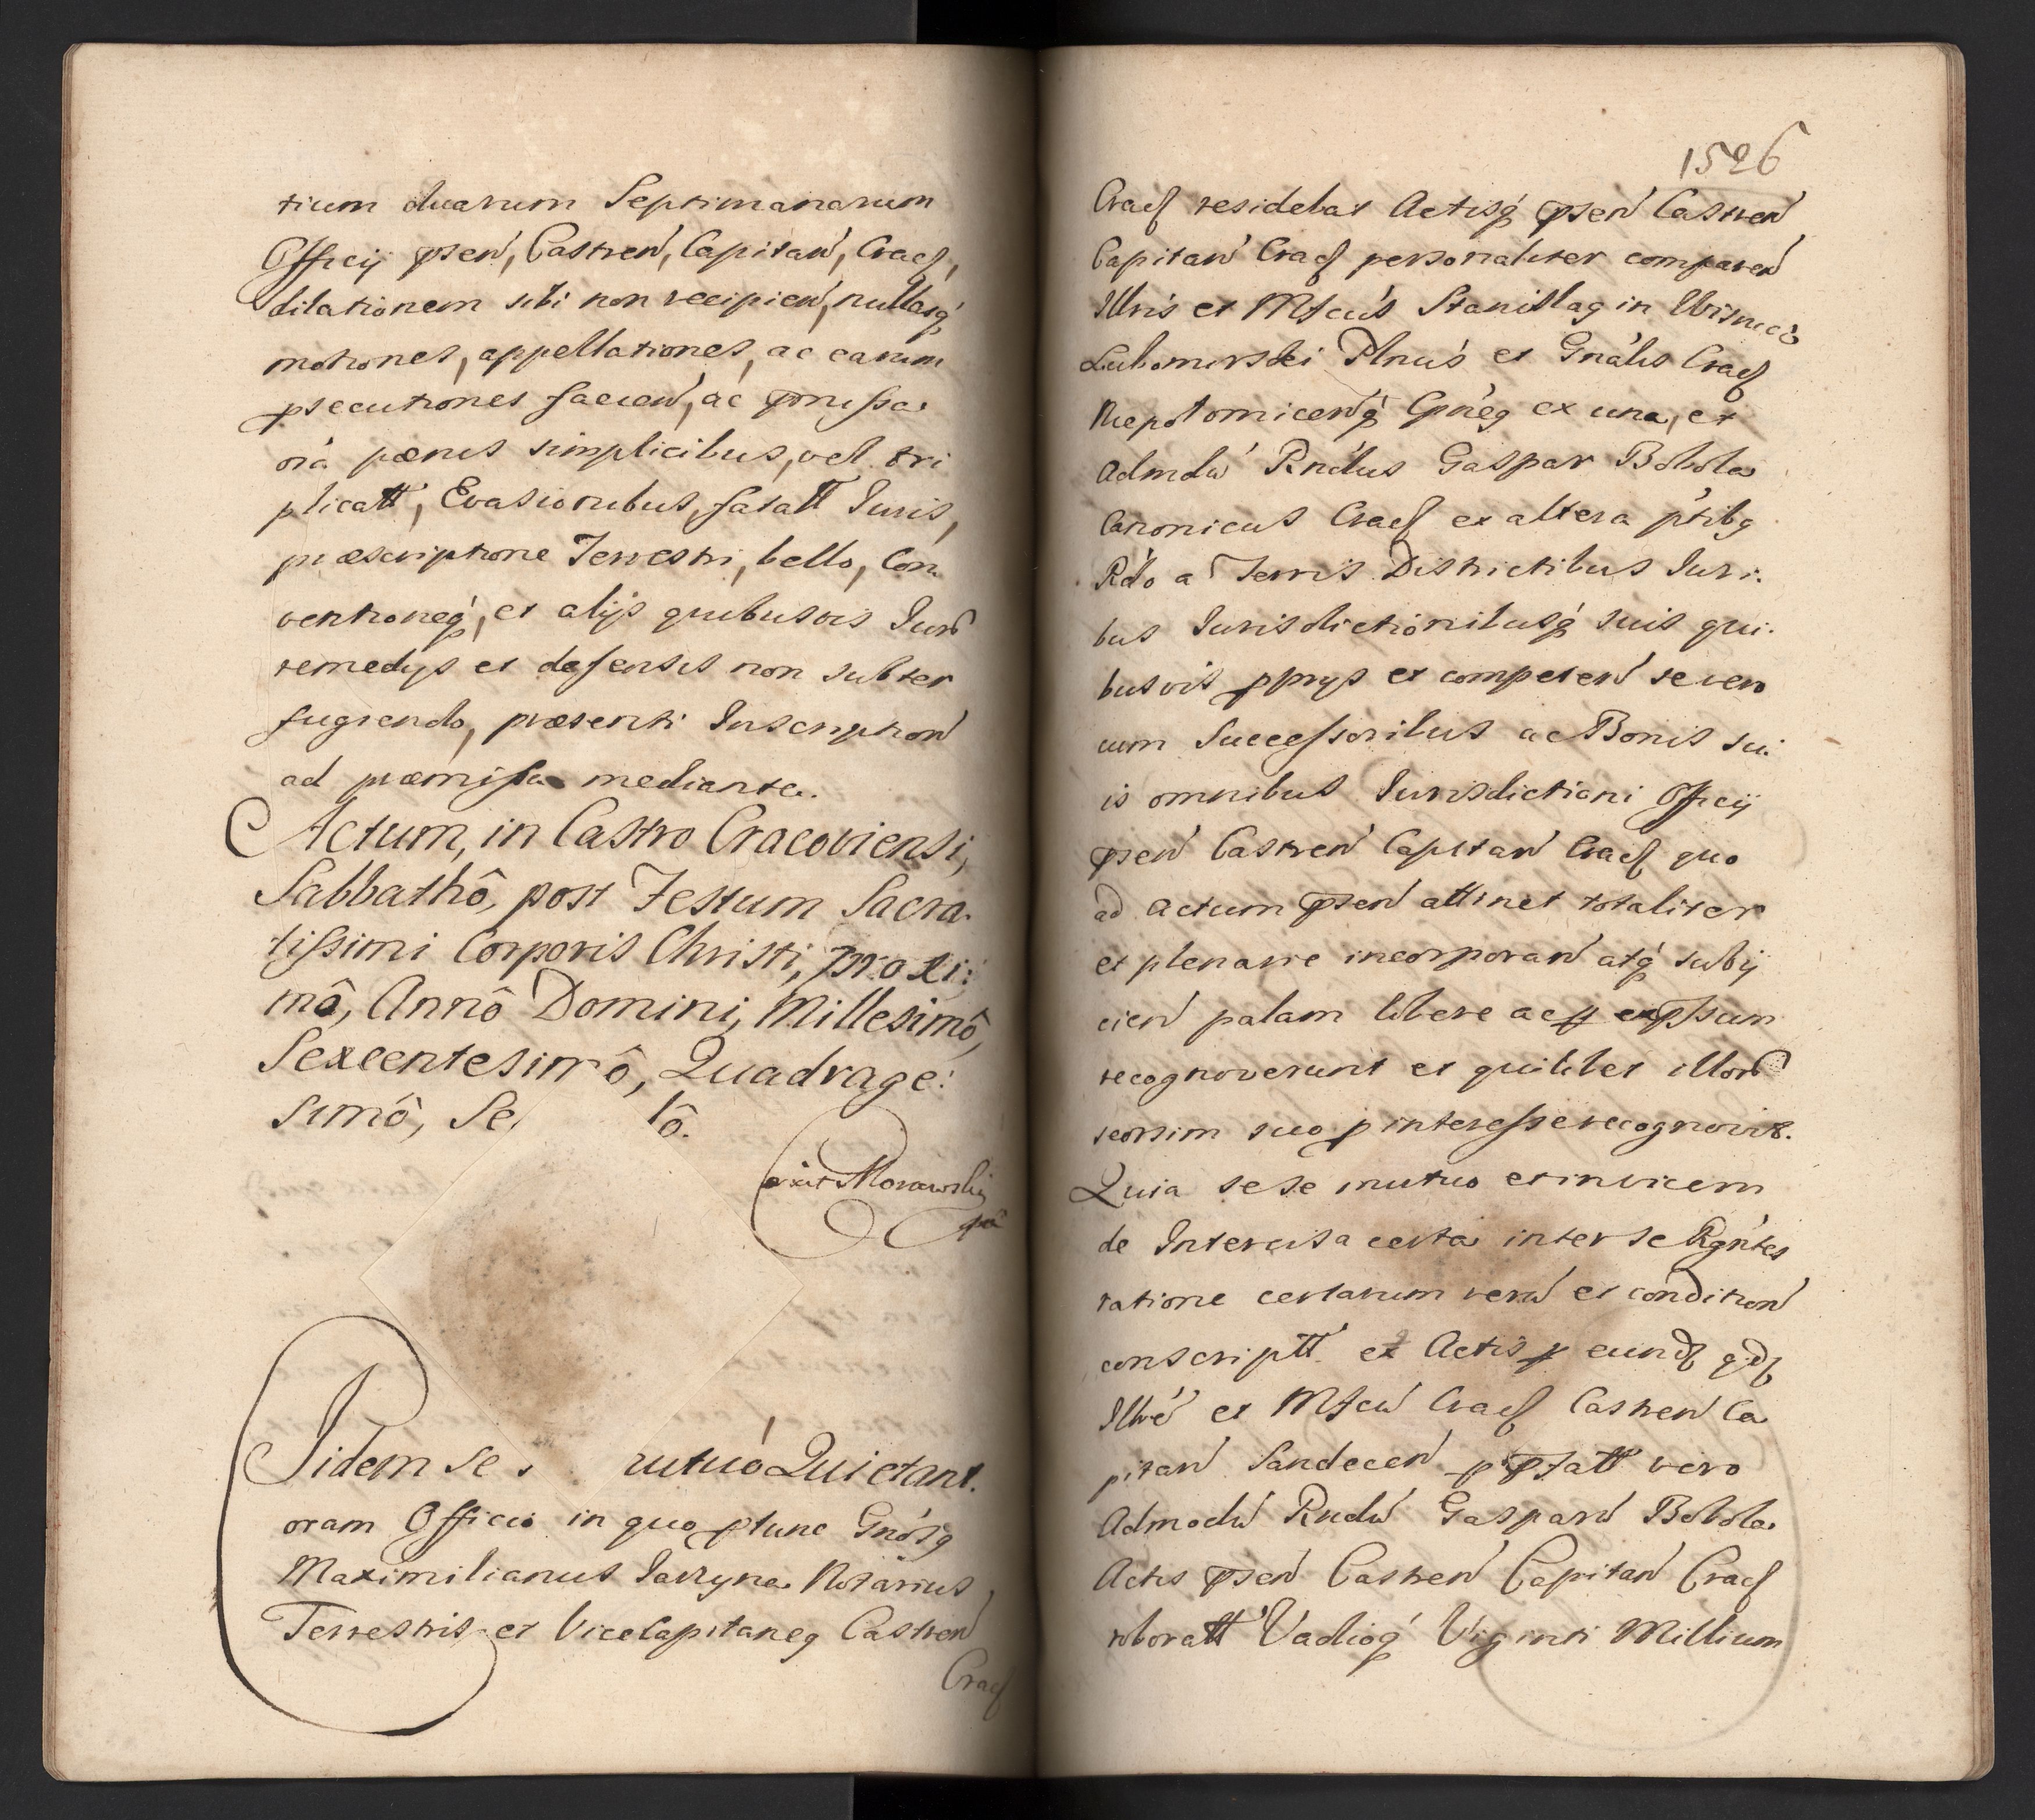 tium duarum Septimanarum
Officij pŕsen, Castren, Capitan, Crac,
dilationem sibi non recipien, nullasq́
motiones, appellationes, ac earum
psecutiones facien, ac pŕmissa
oia pœnis simplicibus, vel tri
plicatt, Evasionibus, fatatt Iuris,
præscriptione Terrestri, bello, Con
ventioneq́, et alijs quibusvis Iurŭ
remedijs et defensis non subter
fugiendo, præsenti Inscription
ad præmissa mediante.
Actum, in Castro Cracoviensi,
Sabbathô, post Festum Sacra.
tissimi Corporis Christi, proxi:
mô, Annô Domini, Millesimô,
Sexcentesimô, Quadrage:
simô, Se tô.
Morawski
Iidem se utuó Quietant.
oram Officio in quo ptunc Gnósq
Maximilianus Iarzyna Notarius
Terrestris et ViceCapitaneq Castren
Crac
1526
Crac residebat Actisq́ pŕsen Castren
Capitan Crac personaliter comparen
Illris et Mfcús Stanislaq in Wisnicz
Lubomirski Plnús et Gnális Crac
Niepolomicenq́ Cpńeq ex una, et
Admdŭ Rndus Gaspar Bobola
Canonicus Crac ex altera ptibq
Rdó a Terris Districtibus Iuri.
bus Iurisdictionibusq́ suis qui.
busvis pprijs et competen se vero
cum Successoribus ac Bonis su
is omnibus Iurisdictioni Officij
pŕsen Castren Capitan Crac quo
ad actum pŕsen attinet totaliter
et plenarie incorporan atq́ subij
cien palam libere ac p expŕssum
recognoverunt et quilibet illorŭ
seorsim suo p interesse recognovit.
Quia sese mutuo et invicem
de Intercisa certa inter se Rgńtes
ratione certarum rerŭ et condition
conscriptt ex Actis p eund qd
Illré et Mfcŭ Crac Castren Ca
pitan Sandecen p pŕfatt vero
Admodŭ Rndŭ Gasparŭ Bobola
Actis pŕsen Castren Capitan Crac
roboratt Vadioq́ Viginti Millium